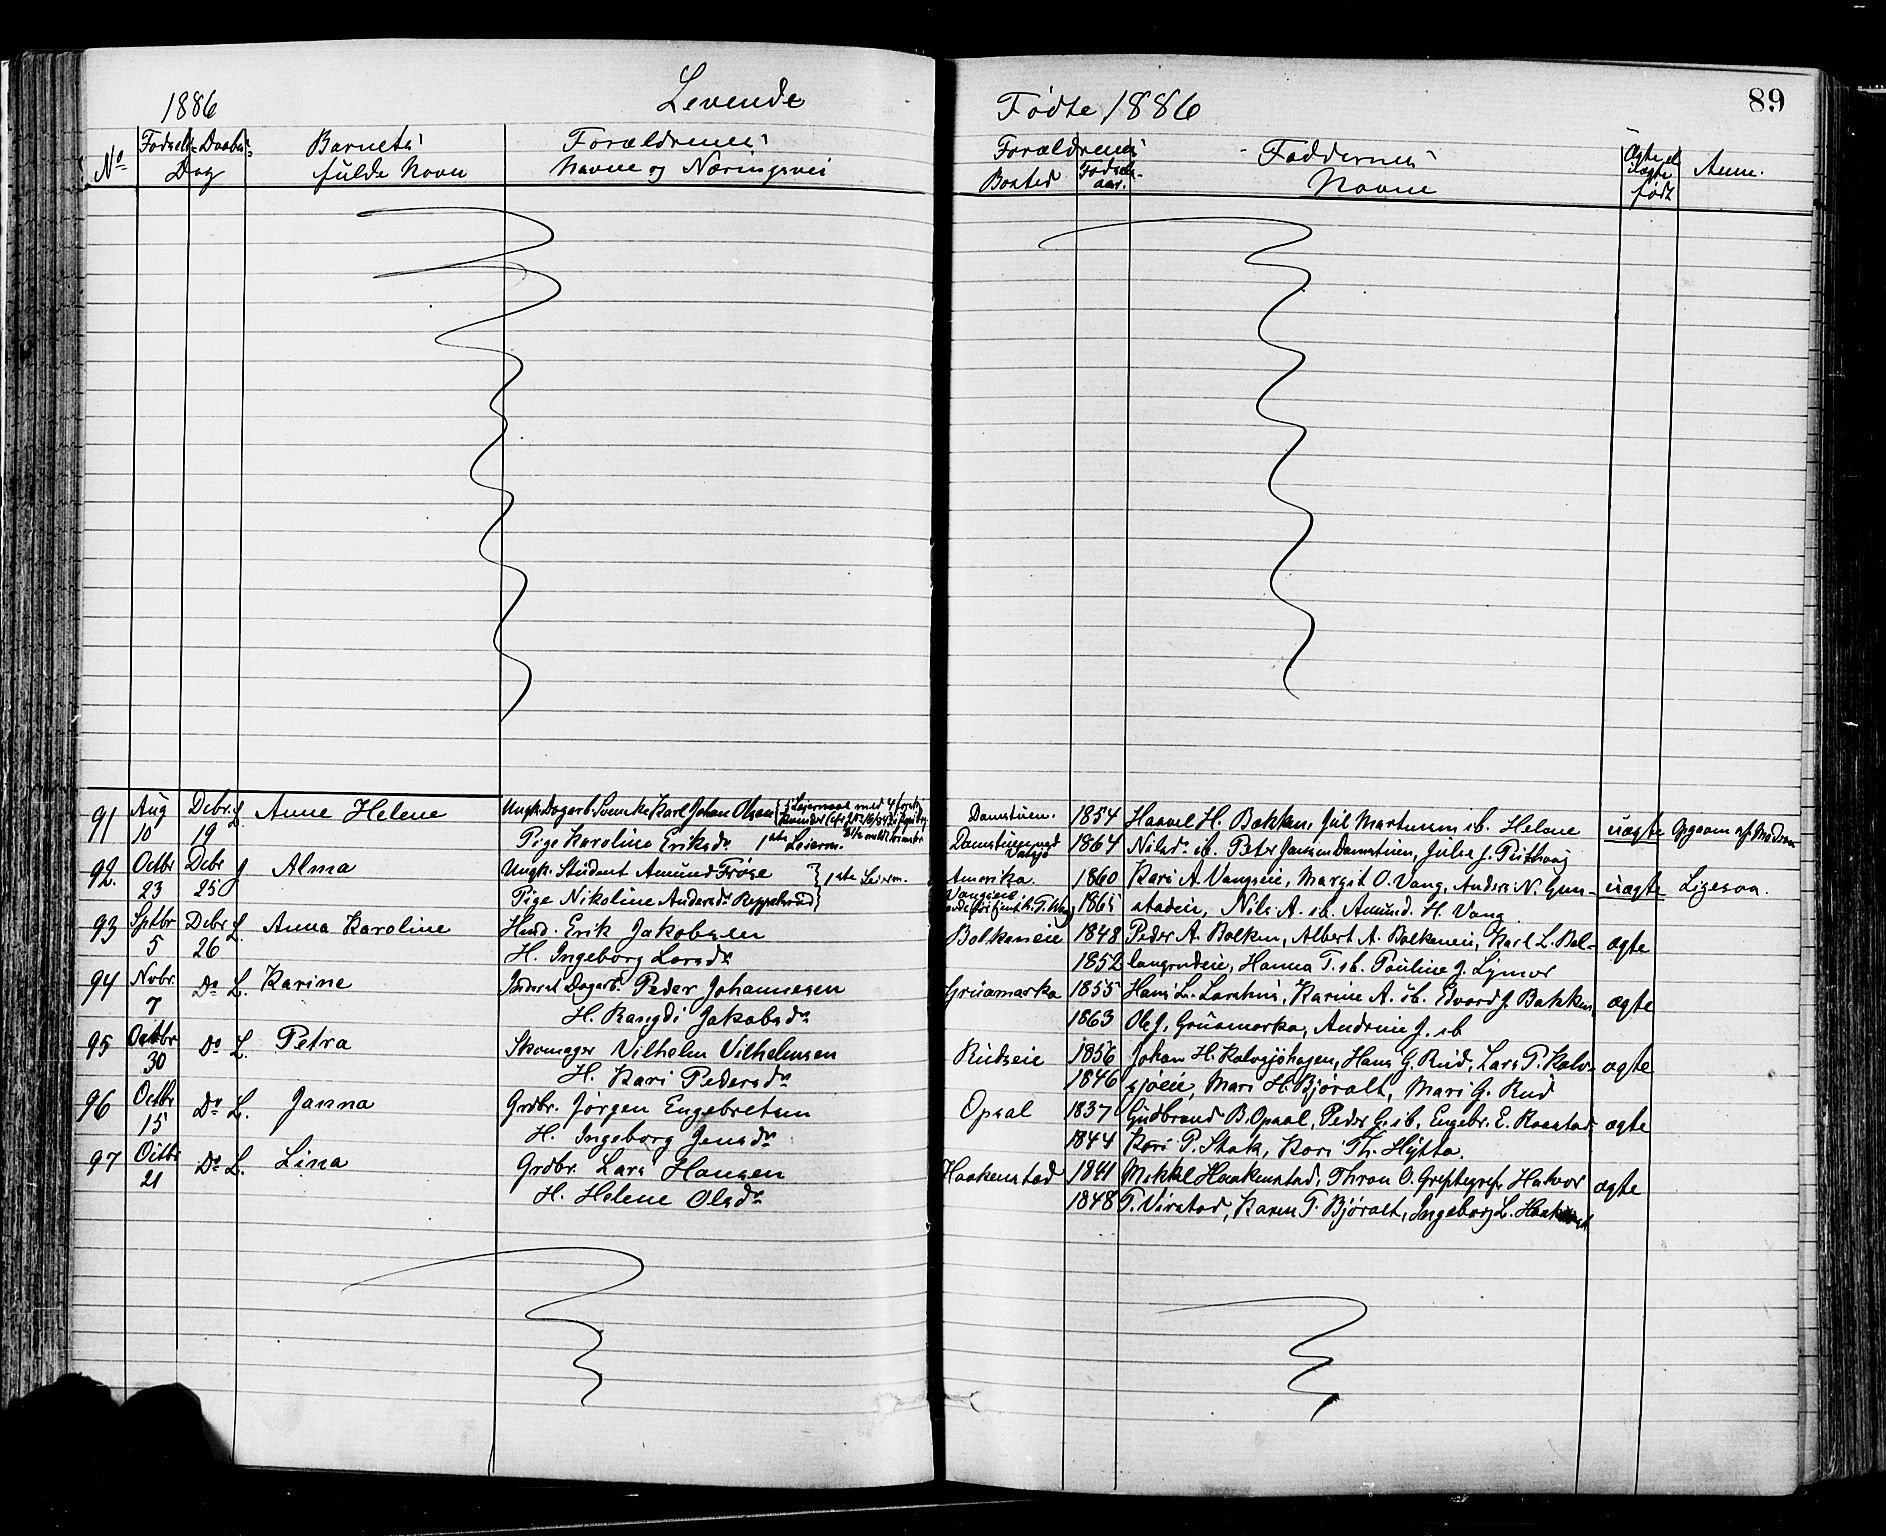 1886 Levende
Fødte 1886 89
No Fødsels- Daabs- Dag
Barnets fulde Navn
Forældrenes Navne og Næringsvei
Forældrenes Bosted Fødsels-aar.
Faddernes Navne
Ægte el. uægte født
Anm.
91 Aug 10 Debr 19 L. Anne Helene
Ungk. Dagarb. Svenske Karl Johan Olsen
Pige Karoline Eriksdr 1ste Leierm.
Damstuen. 1854 Haavel H. Bakken, Jul Martinsen ib. Helene
1864 Nilsdr ib. Peter Jansen Damstuen, Julie J.
uægte Opgaven af Moderen
92. Octbr 23 Debr 25 J Alma
Ungk. Student Amund Frøse 1ste Leierm.
Pige Nikoline Andersdr
Amerika. 1860 Kari A. Vangseie, Margit O. Vang, Anders N. Gun-
Vangseie 1865 stadeie, Nils A. ib. Amund H. Vang
uægte Ligesaa.
93 Sptbr 5 Debr 26 L. Anna Karoline
Husd. Erik Jakobsen
H. Ingeborg Larsdr
Bolkeneie 1848 Peder A. Bolken, Albert A. Bolkeneie, Karl L. Bal-
1852 langrudeie, Hanna T. ib. Pauline J.
ægte
94 Novbr. 7 Do L. Karine
Inderst Dagarb. Peder Johannesen
H. Rangdi Jakobsdr
Gruamarka 1855 Hans L. Karine A. ib. Edvard J. Bakken,
1863 Ole J. Gruamarka, Andrine J. ib
ægte
95 Octbr 30 Do L. Petra
Skomager Vilhelm Vilhelmsen
H. Kari Pedersdr
Rudseie 1856 Johan H. Kalvsjøhagen, Hans G. Rud, Lars P. Kalv-
1846 sjøeie, Mari H. Bjøralt, Mari G. Rud
ægte
96 Octbr 15 Do L. Janna
Grdbr. Jørgen Engebretsen
H. Ingeborg Jensdr
Opsal 1837 Gudbrand B. Opsal, Peder G. ib, Engebr. E. Raastad,
1844 Kari P. Stok, Kari Th. Hytta.
ægte
97 Octbr 21 Do L. Lina
Grdbr. Lars Hansen
H. Helene Olsdr
Haakenstad 1841 Mikkel Haakenstad, Thron O. Halvor
1848 T. Virstad, Karen T. Bjøralt, Ingeborg L.
ægte